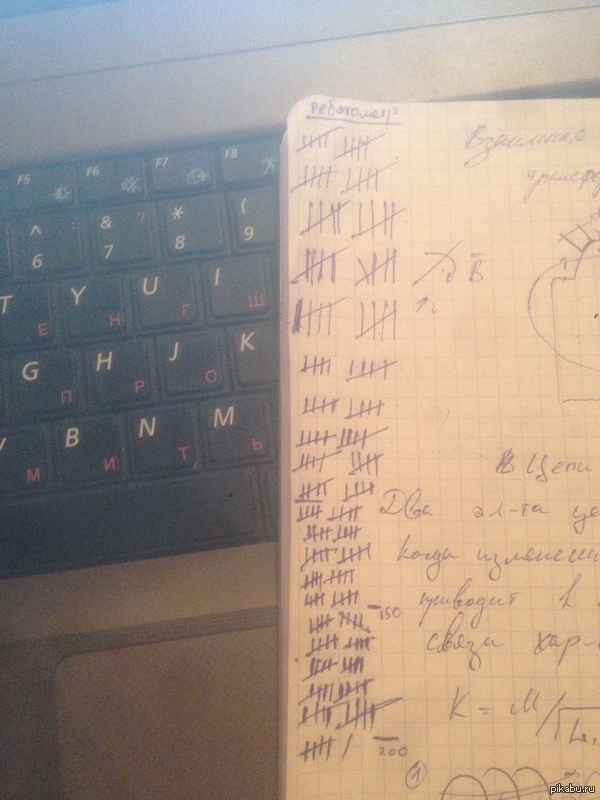 F5 F6 F7 F8
^ 6 & 7 ? * 8 ( 9
T Е Y Н U Г I Ш
G П H Р J О K
V М B И N Т M Ь
ребятометр
Взаимная
трансфо
В Цепи
Два эл-та це
когда изменени
приводит к
150
связи хар-
K = M/√L₁
200
1
pikabu.ru